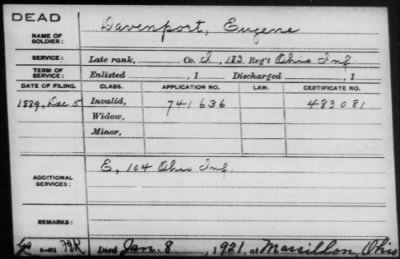 DEAD
NAME OF SOLDIER: Davenport, Eugene
SERVICE: Late rank, Co. I, 183 Reg't Ohio Inf.
TERM OF SERVICE: Enlisted , 1 Discharged , 1
DATE OF FILING. CLASS. APPLICATION NO. LAW. CERTIFICATE NO.
1889, Dec 5 Invalid, 741636 483081
Widow,
Minor,
ADDITIONAL SERVICES: E, 104 Ohio Inf.
REMARKS:
Died Jan. 8, 1921, at Massillon, Ohio